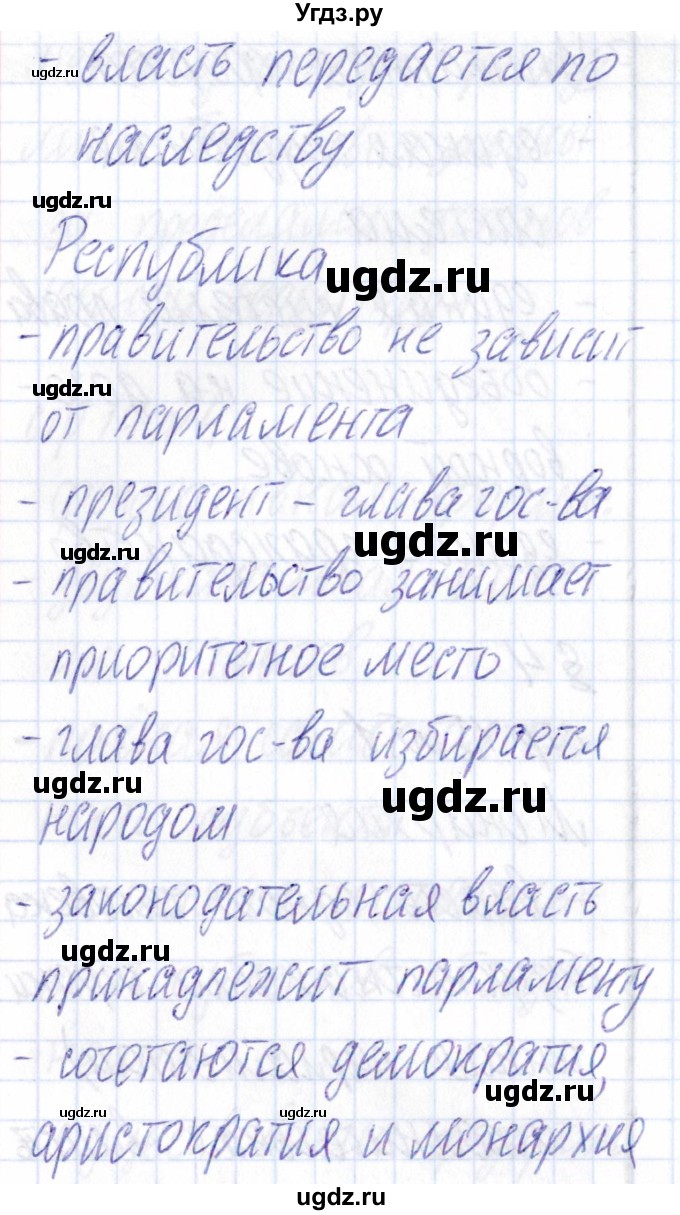 Угдз.ру
- власть передается по
ugdz.ru
наследству
ugdz.ru
Республика
ugdz.ru
- правительство не зависит
ugdz.ru
от парламента
- президент - глава гос-ва
ugdz.ru
ugdz.ru
- правительство занимает
приоритетное место
- глава гос-ва избирается
ugdz.ru
ugdz.ru
народом
- законодательная власть
ugdz.ru
принадлежит парламенту
- сочетаются демократия,
ugdz.ru
ugdz.ru
ugdz.ru
аристократия и монархия
ugdz.ru